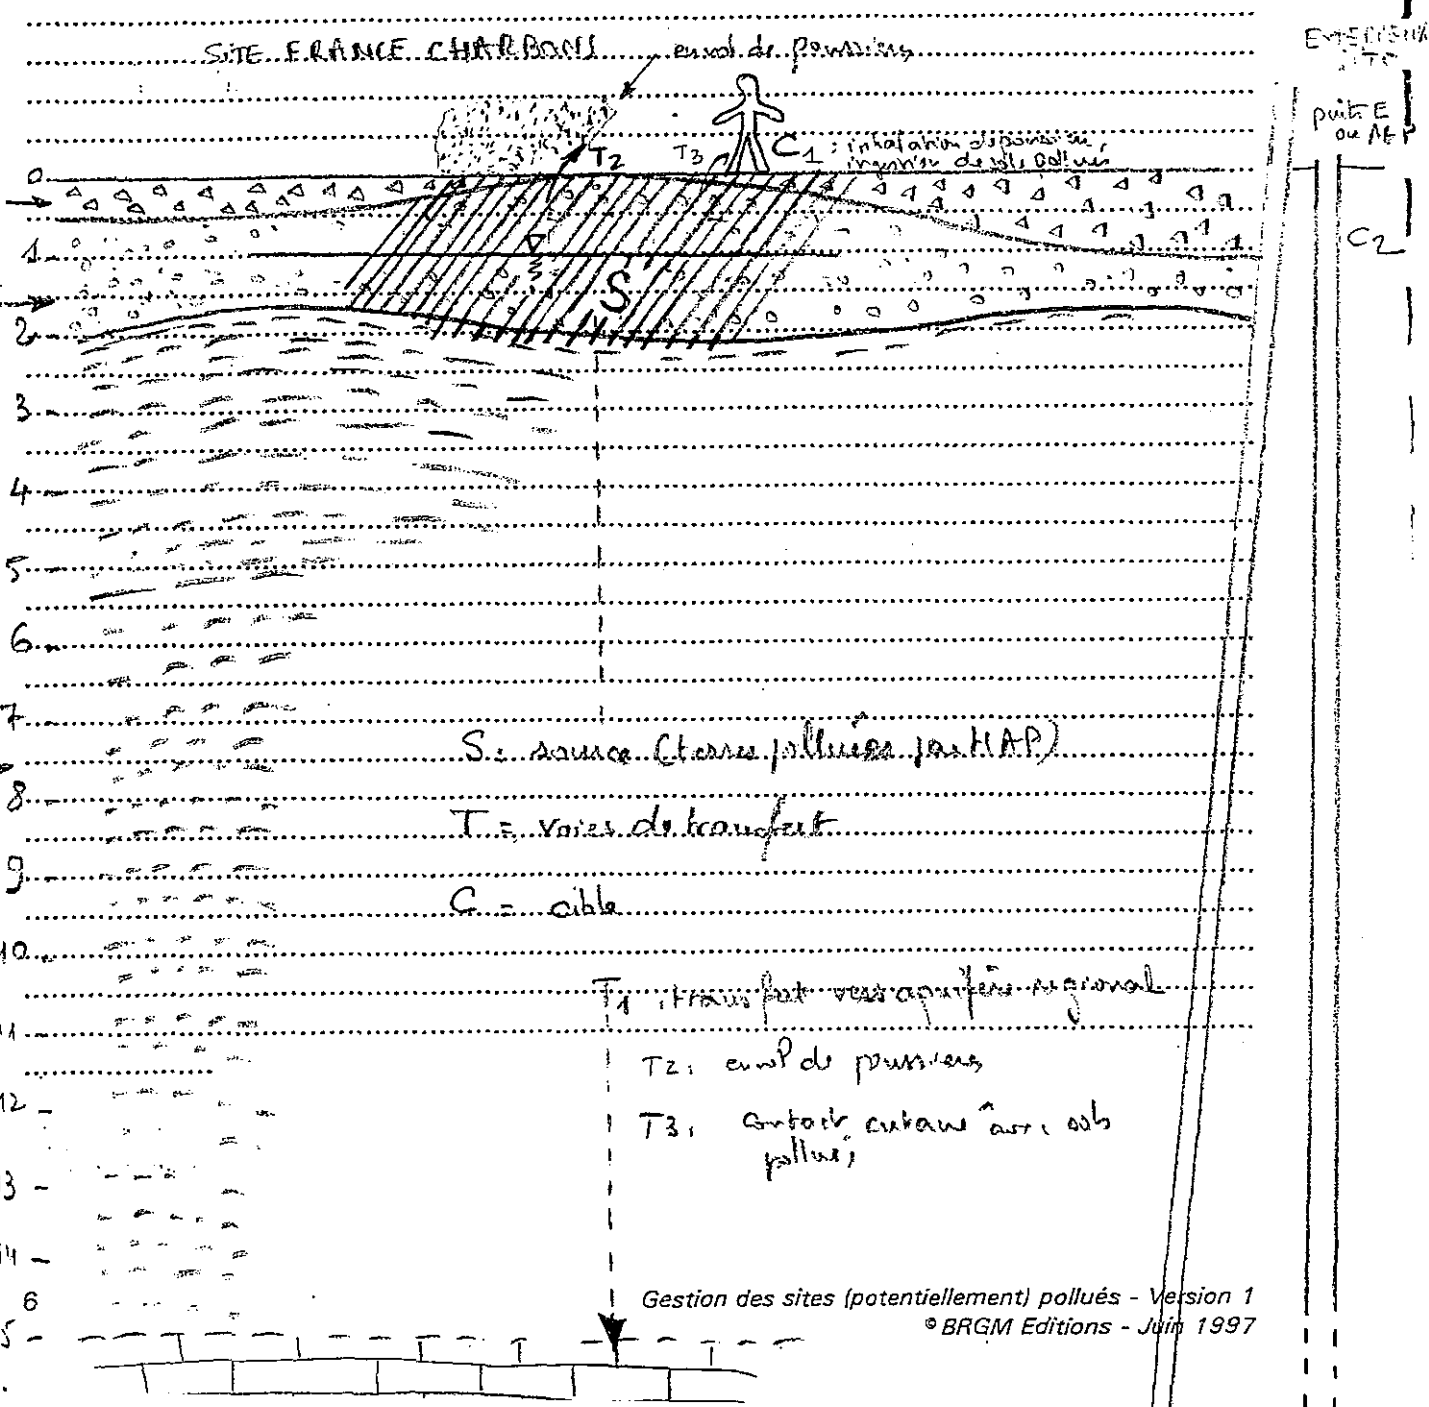 SITE FRANCE CHARBONS
envol de poussières
EXTERIEUR
SITE
puits E
ou AEP
T2
T3
C1 : inhalation de poussières,
ingestion de sols pollués
0
1
C2
S
2
3
4
5
6
7
S : source (terres polluées par HAP)
8
T = voies de transfert
9
C = cible
10
T1 : transfert vers aquifère régional
11
T2 : envol de poussières
12
T3 : contact cutané avec sols
pollués
3
14
Gestion des sites (potentiellement) pollués - Version 1
6
© BRGM Editions - Juin 1997
5